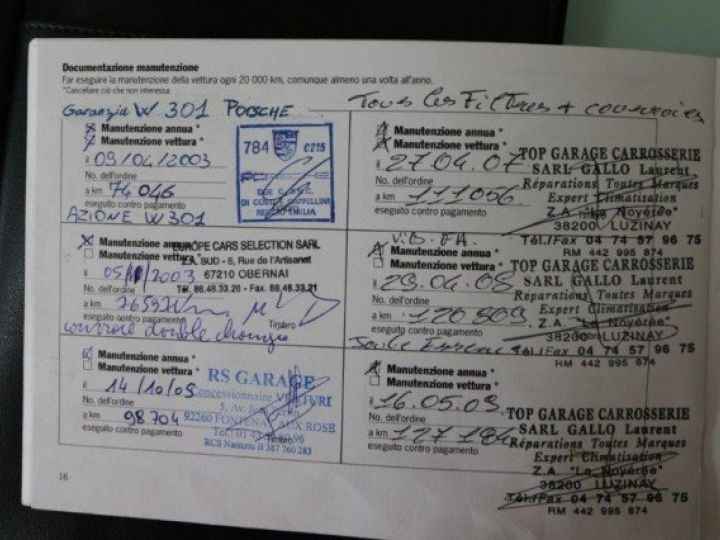 Documentazione manutenzione
Far eseguire la manutenzione della vettura ogni 20 000 km, comunque almeno una volta all'anno.
*Cancellare ciò che non interessa
Garanzia W 301 PORSCHE
Manutenzione annua *
Manutenzione vettura *
il 09/04/2003
No. dell'ordine
a km 74 046
eseguito contro pagamento
AZIONE W301
784 C215
DI COSTI & CAPPELLINI
REGGIO EMILIA
Manutenzione annua *
Manutenzione vettura
il 05/ /2003
No. dell'ordine
a km
eseguito contro pagamento
Timbro
EUROPE CARS SELECTION SARL
Z.A. SUD - 8, Rue de l'Artisanat
67210 OBERNAI
Tél. 88.48.33.20 - Fax. 88.48.33.21
Manutenzione annua *
Manutenzione vettura *
il 14/10/05
No. dell'ordine
a km 98 704
eseguito contro pagamento
Timbro
RS GARAGE
Concessionnaire VENTURI
5, Av.
92260 FONTENAY AUX ROSE
RCS Nanterre B 387 760 283
Tous les Filtres + courroies
Manutenzione annua *
Manutenzione vettura *
il 27.04.07
No. dell'ordine
a km 111056
eseguito contro pagamento
TOP GARAGE CARROSSERIE
SARL GALLO Laurent
Réparations Toutes Marques
Expert Climatisation
Z.A. "La Noyerée"
38200 LUZINAY
Tél./Fax 04 74 57 96 75
RM 442 995 874
Manutenzione annua *
Manutenzione vettura *
il 29.04.08
No. dell'ordine
a km 120809
eseguito contro pagamento
TOP GARAGE CARROSSERIE
SARL GALLO Laurent
Réparations Toutes Marques
Expert Climatisation
Z.A. "La Noyerée"
38200 LUZINAY
Tél./Fax 04 74 57 96 75
RM 442 995 874
Manutenzione annua *
Manutenzione vettura *
il 16.05.09
No. dell'ordine
a km 127184
eseguito contro pagamento
TOP GARAGE CARROSSERIE
SARL GALLO Laurent
Réparations Toutes Marques
Expert Climatisation
Z.A. "La Noyerée"
38200 LUZINAY
Tél./Fax 04 74 57 96 75
RM 442 995 874
16